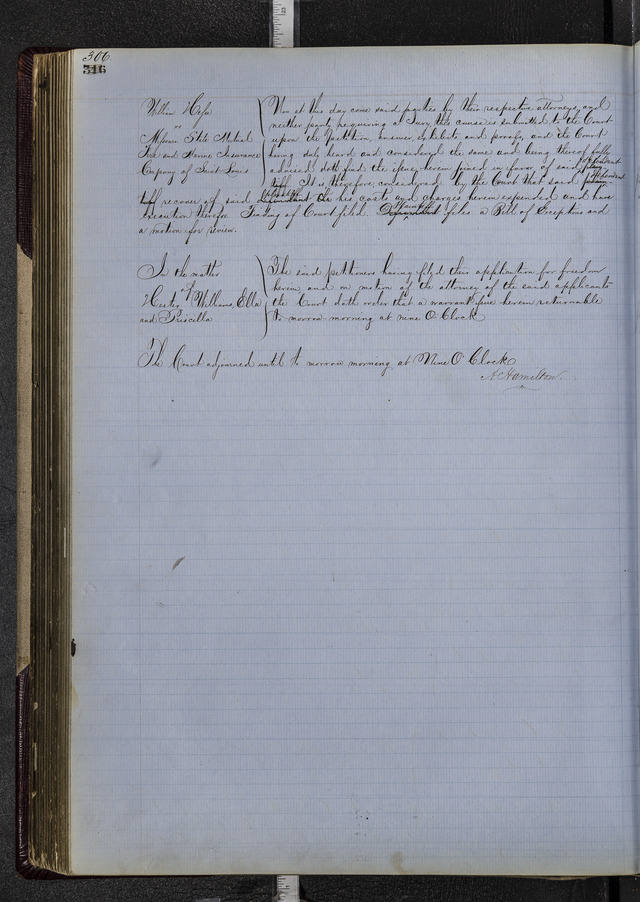 306
316
William Hess
vs
Missouri State Mutual
Fire and Marine Insurance
Company of Saint Louis
Now at this day come said parties by their respective attorneys, and
neither party requiring a Jury this cause is submitted to the Court
upon the Petition, answer, exhibits and proofs, and the Court
having duly heard and considered the same and being thereof fully
advised doth find the issue herein joined in favor of said defendant
tiff It is therefore considered by the Court that said defendant
tiff recover of said plaintiff his costs and charges herein expended and have
execution therefor Finding of Court filed. Plaintiff files a Bill of Exceptions and
a motion for review.
In the matter
of
Williams, Ella
and Priscilla
The said petitioners having filed their application for freedom
herein and on motion of the attorney of the said applicants
the Court doth order that a warrant issue herein returnable
to morrow morning at nine O Clock
The Court adjourned until to morrow morning at Nine O Clock
A. Hamilton